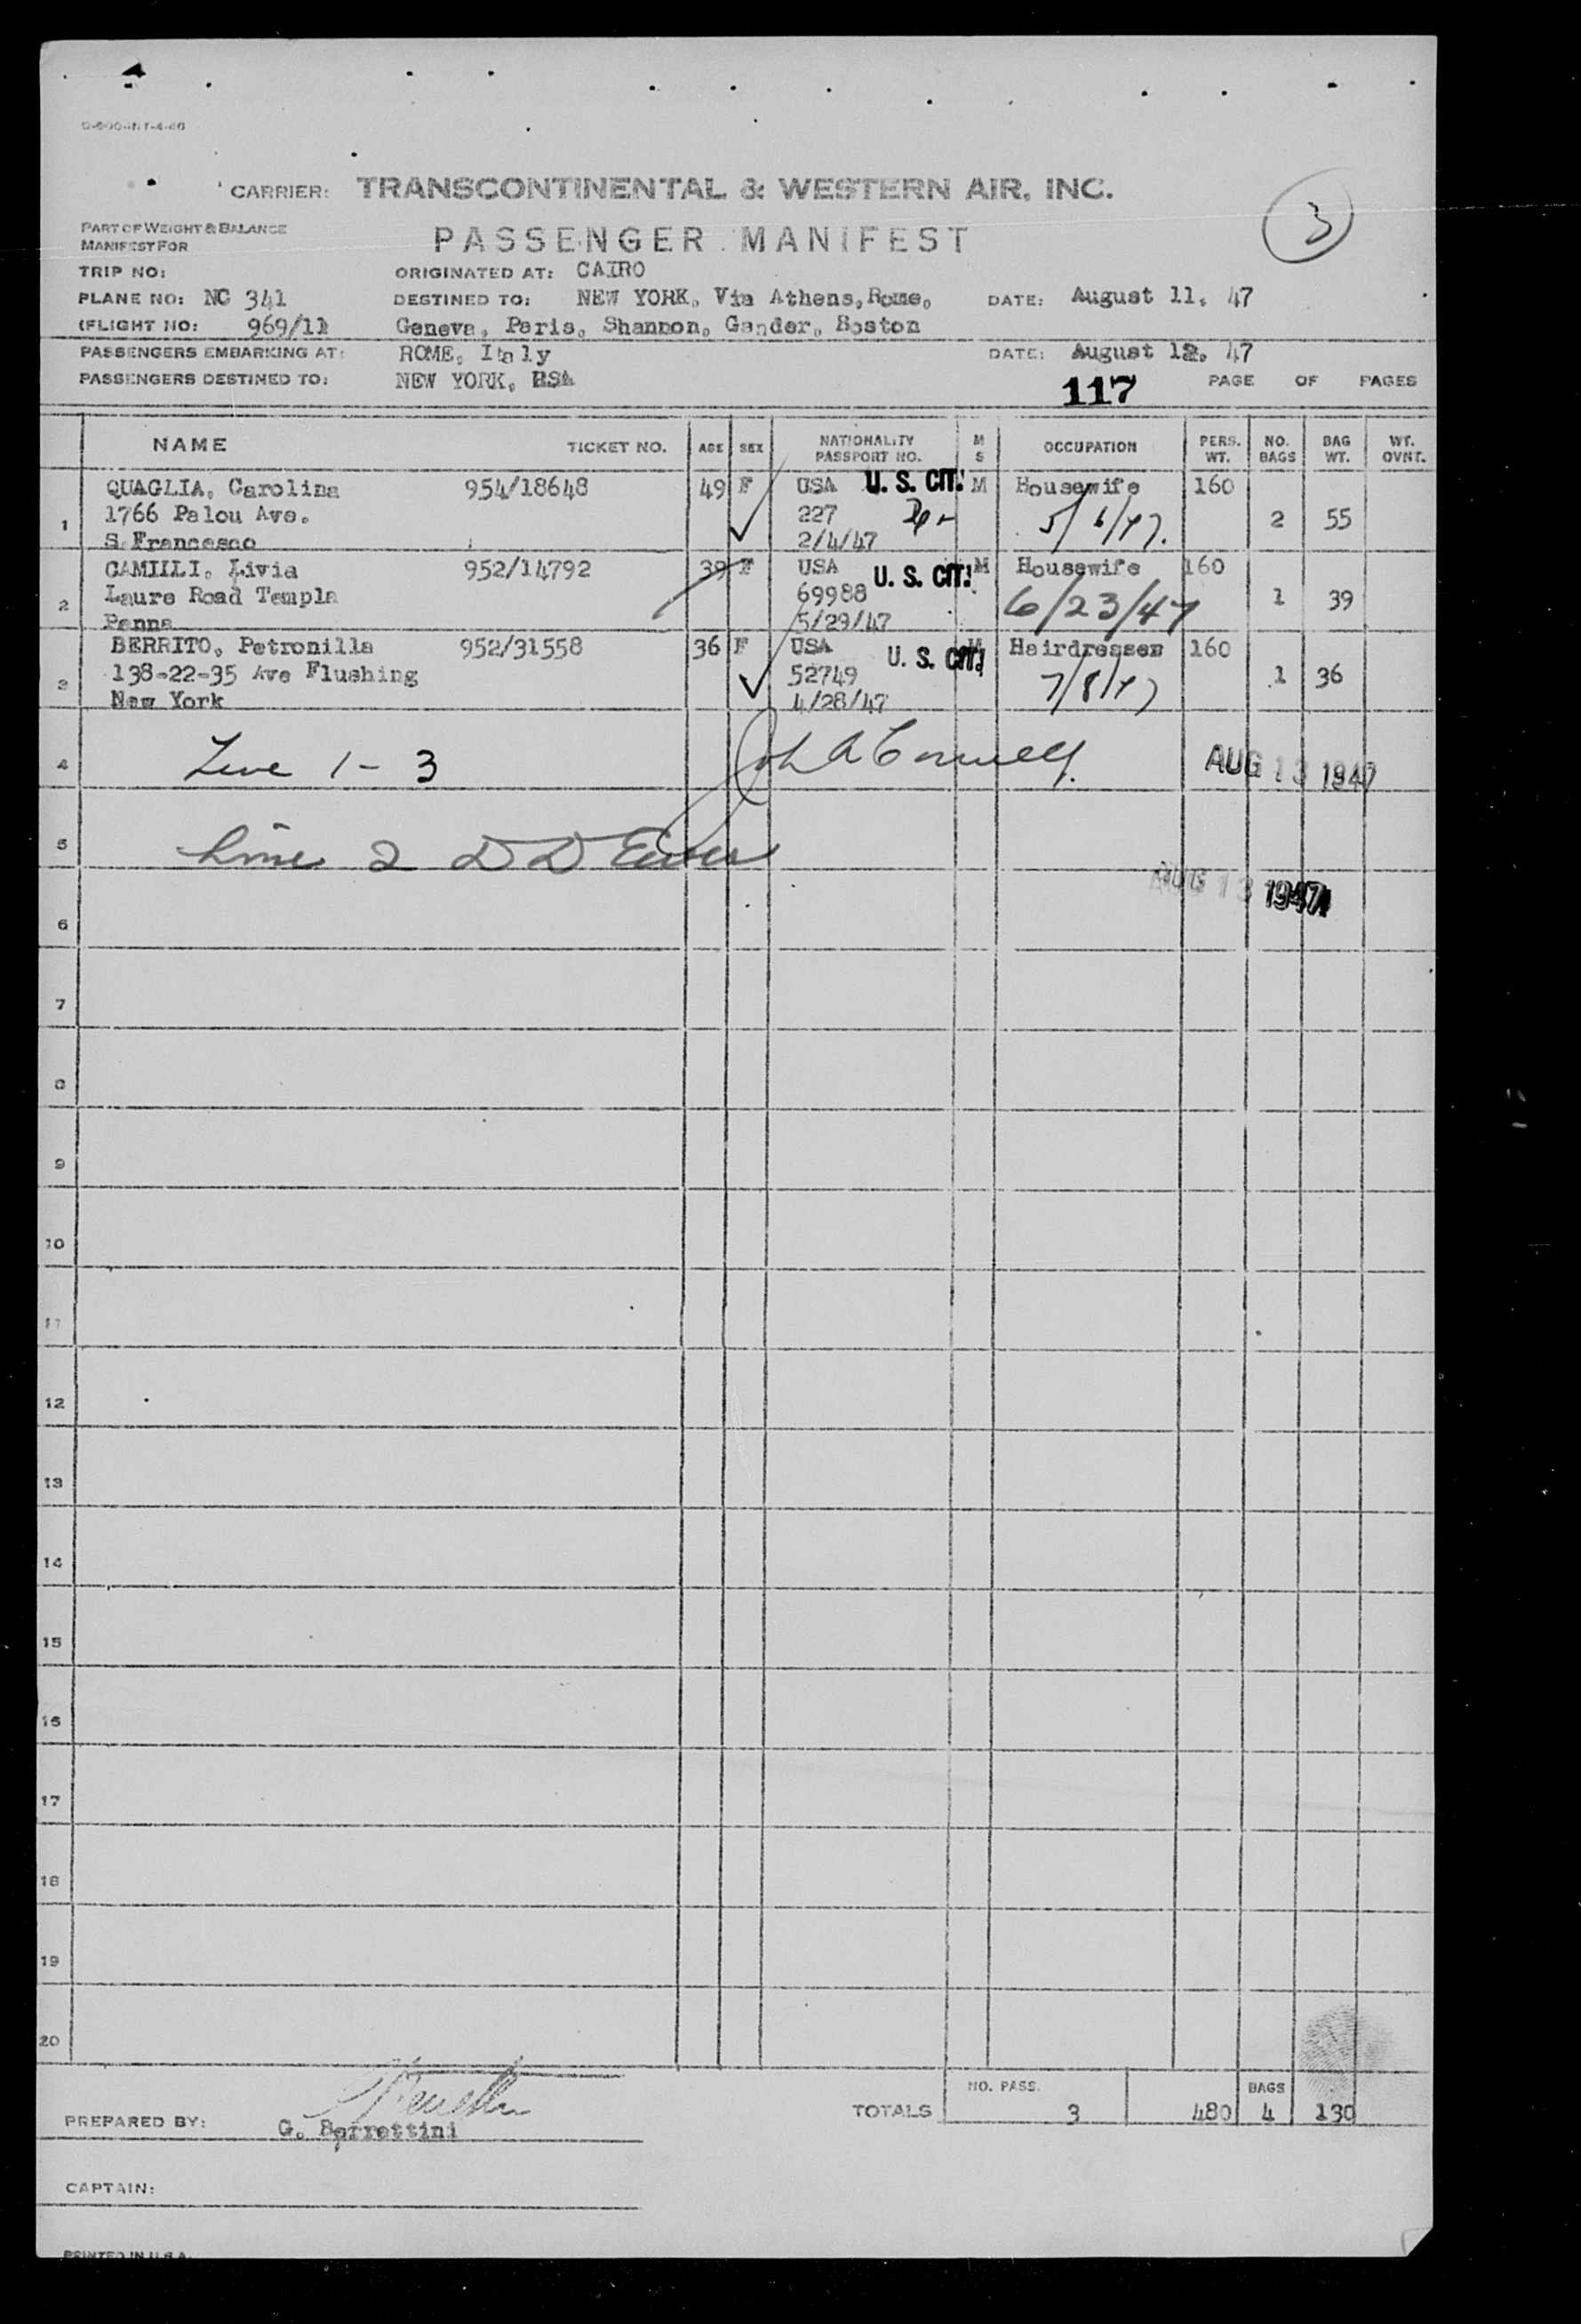 CARRIER: TRANSCONTINENTAL & WESTERN AIR, INC.
3
PART OF WEIGHT & BALANCE
MANIFEST FOR
PASSENGER MANIFEST
TRIP NO:
ORIGINATED AT: CAIRO
PLANE NO: NC 341
DESTINED TO: NEW YORK, Via Athens, Rome,
DATE: August 11, 47
(FLIGHT NO: 969/11
Geneva, Paris, Shannon, Gander, Boston
PASSENGERS EMBARKING AT: ROME, Italy
DATE: August 12, 47
PASSENGERS DESTINED TO: NEW YORK,
117
PAGE OF PAGES
NAME TICKET NO. AGE SEX NATIONALITY PASSPORT NO. M S OCCUPATION PERS. WT. NO. BAGS BAG WT. WT. OVNT.
QUAGLIA, Carolina 954/18648 49 F USA U. S. CIT. M Housewife 160
1 1766 Palou Ave. 227 5/6/47. 2 55
S. Francesco 2/4/47
CAMIILI, Livia 952/14792 39 F USA U. S. CIT. M Housewife 160
2 Laure Road Templa 69988 6/23/47 1 39
Penna 5/29/47
BERRITO, Petronilla 952/31558 36 F USA U. S. CIT. M Hairdresser 160
3 138-22-35 Ave Flushing 52749 7/8/47 1 36
New York 4/28/47
4 Line 1 - 3 AUG 13 1947
5 Line 2 D D
AUG 13 1947
6
7
8
9
10
11
12
13
14
15
16
17
18
19
20
NO. PASS. BAGS
TOTALS 3 480 4 130
PREPARED BY: G. Berrettini
CAPTAIN:
PRINTED IN U.S.A.